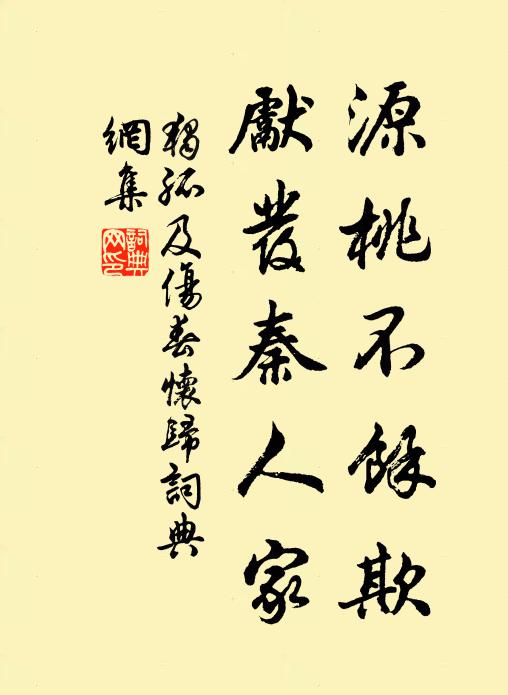 源桃不餘欺
獻發秦人家
獨孤及傷春懷歸詞典
網集
詞典
网印